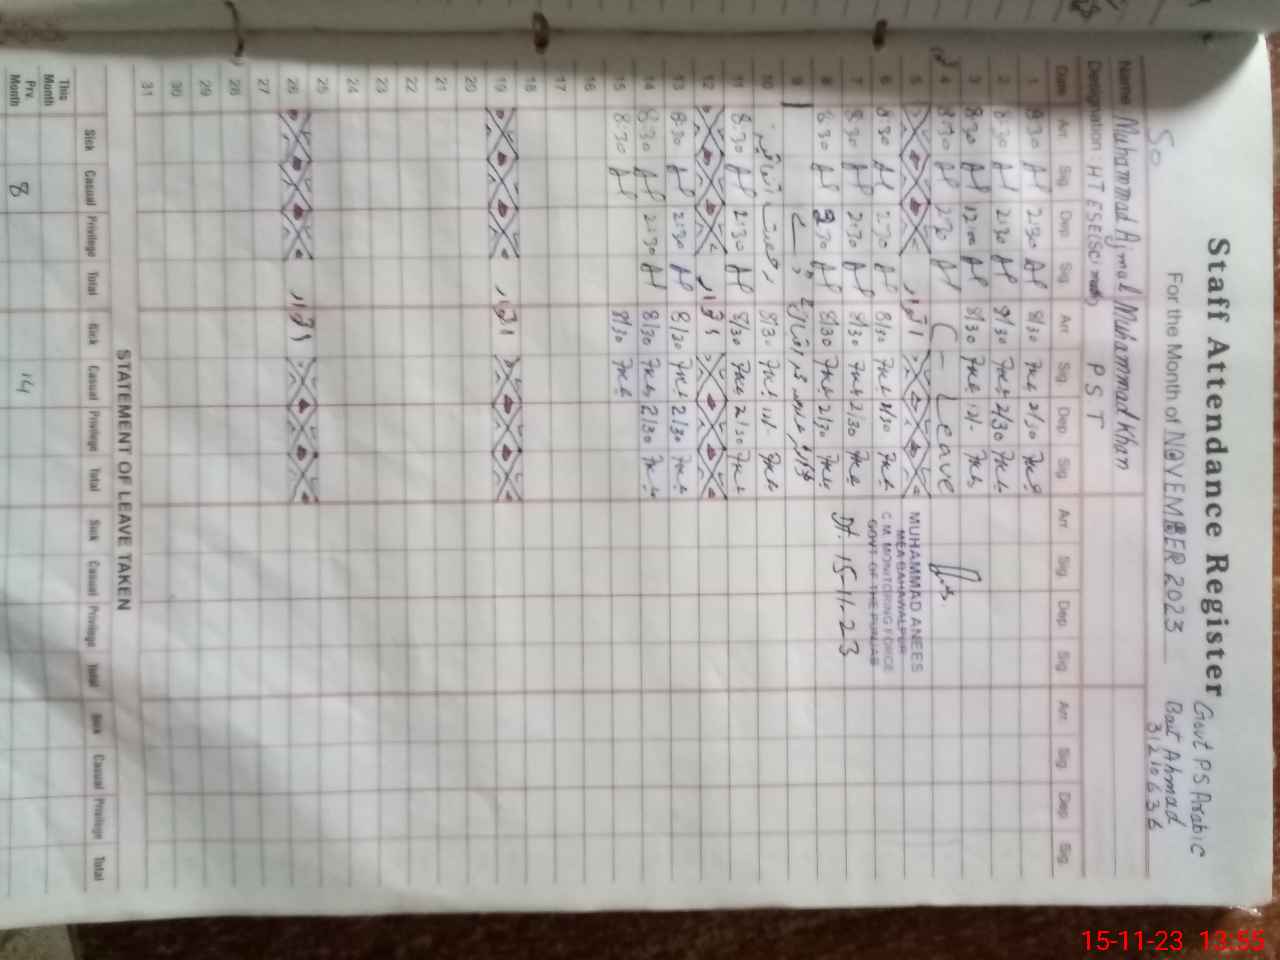 Staff Attendance Register
Govt PS Arabic
Bait Ahmad
31210636
For the Month of NOVEMBER 2023
So
Name Muhammad Ajmal Muhammad Khan
Designation : HT ESE(Sci math) PST
Date Arr Sig Dep Sig Arr Sig Dep Sig Arr Sig Dep Sig Arr Sig Dep Sig
1 8:30 2:30 8/30 2/30
2 8:30 2:30 8/30 2/30
3 8:30 12:00 8/30 12/-
4 8:30 2:30 C - Leave
5 اتوار
6 8:30 2:30 8/30 2/30
7 8:30 2:30 8/30 2/30
8 8:30 2:30 8/30 2/30
9
10 رخصت اتفاقیہ 8/30 12/-
11 8:30 2:30 8/30 2/30
12 اتوار
13 8:30 2:30 8/30 2/30
14 8:30 2:30 8/30 2/30
15 8:30 8/30
16
17
18
19 اتوار
20
21
22
23
24
25
26 اتوار
27
28
29
30
31
MUHAMMAD ANEES
MEA BAHAWALPUR
C.M. MONITORING FORCE
GOVT OF THE PUNJAB
Dt. 15-11-23
STATEMENT OF LEAVE TAKEN
Sick Casual Privilege Total Sick Casual Privilege Total Sick Casual Privilege Total Sick Casual Privilege Total
This Month
Prv. Month 8 14
15-11-23 13:55